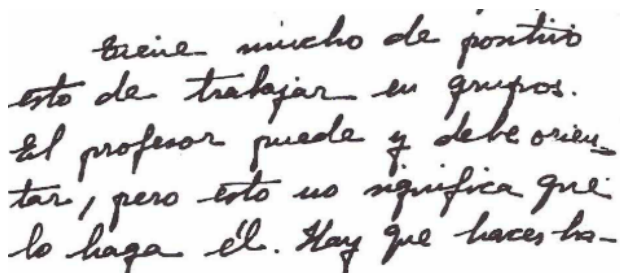 tiene mucho de positivo
esto de trabajar en grupos.
El profesor puede y debe orien-
tar, pero esto no significa que
lo haga él. Hay que hacer ha-